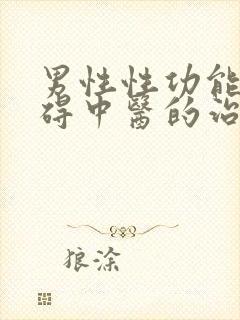 男性性功能
碍中醫的治
狼涂